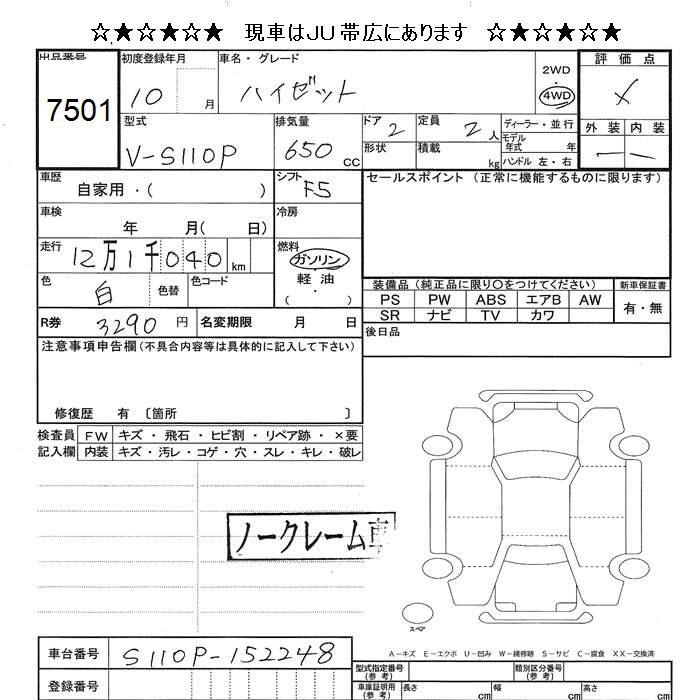 ☆★☆★☆★ 現車はJU帯広にあります ☆★☆★☆★
出品番号 初度登録年月 車名・グレード 評価点
7501 10 月 ハイゼット 2WD 4WD
型式 排気量 ドア 2 定員 2 人 ディーラー・並行 外装 内装
V-S110P 650 cc 形状 積載 kg モデル年式 年 ハンドル 左・右 — —
車歴 自家用・( ) シフト F5 セールスポイント (正常に機能するものに限ります)
車検 年 月( 日) 冷房
走行 12万1千040 km 燃料 ガソリン 軽油 ( ・ )
色 白 色替 色コード 装備品 (純正品に限り○をつけてください) 新車保証書
PS PW ABS エアB AW 有・無
SR ナビ TV カワ
R券 3290 円 名変期限 月 日 後日品
注意事項申告欄(不具合内容等は具体的に記入して下さい)
修復歴 有 〔箇所 〕
検査員 FW キズ・飛石・ヒビ割・リペア跡・×要
記入欄 内装 キズ・汚レ・コゲ・穴・スレ・キレ・破レ
ノークレーム車
スペア
A-キズ E-エクボ U-凹み W-補修跡 S-サビ C-腐食 XX-交換済
車台番号 S110P-152248 型式指定番号(参考) 類別区分番号(参考)
登録番号 車庫証明用(参考) 長さ cm 幅 cm 高さ cm